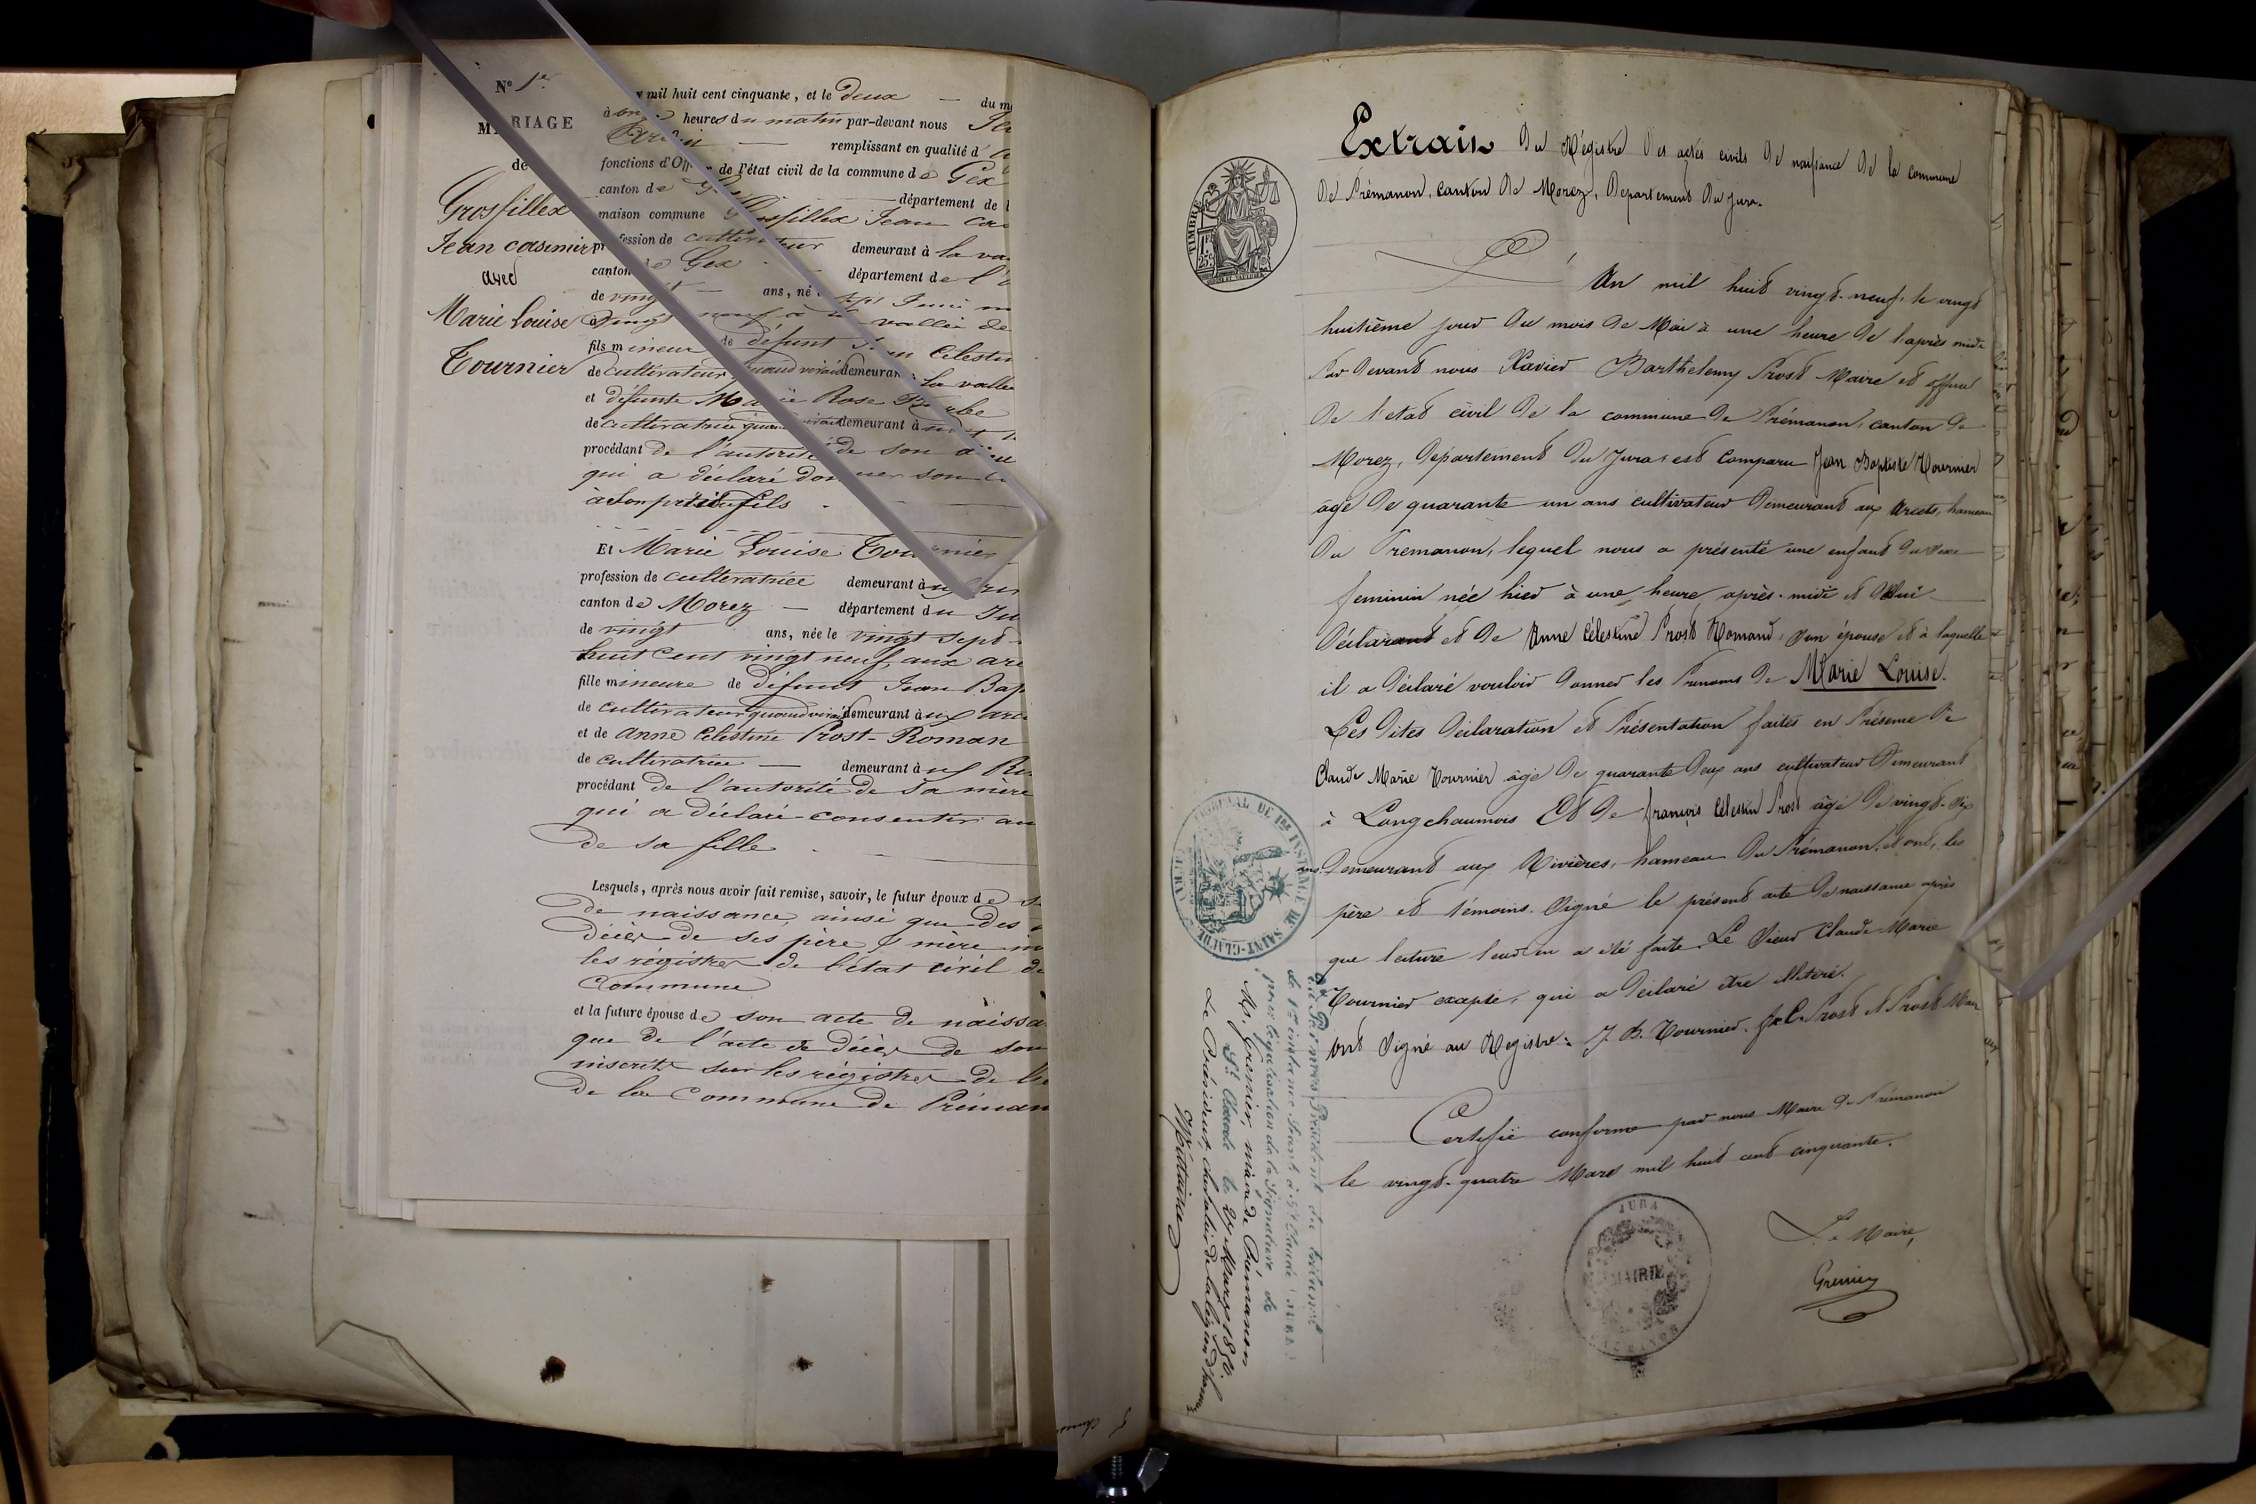 N° 1er
MARIAGE
de
Grosfillex
Jean casimir
avec
Marie Louise
Tournier
mil huit cent cinquante, et le deux — du
à onze heures du matin par-devant nous
remplissant en qualité d'
fonctions d'Officier de l'état civil de la commune de Gex
canton de Gex département de l
maison commune Grosfillex Jean cas
profession de cultivateur demeurant à la va
canton de Gex département de l'
de vingt — ans, né
vingt neuf à la vallée de
fils mineur de défunt Jean Célestin
de cultivateur quand vivait demeurant à la vallé
et défunte Marie Rose
de cultivatrice quand vivait demeurant à
procédant de l'autorité de son aïeu
qui a déclaré donner son
à son petit fils
Et Marie Louise Tournier
profession de cultivatrice demeurant à
canton de Morez — département du Ju
de vingt ans, née le vingt sept
huit cent vingt neuf aux arc
fille mineure de défunt Jean Bap
de cultivateur quand vivait demeurant aux arc
et de anne Célestine Prost-Roman
de cultivatrice — demeurant
procédant de l'autorité de sa mère
qui a déclaré consentir au
de sa fille
Lesquels, après nous avoir fait remise, savoir, le futur époux de s
de naissance, ainsi que des
décès de ses père & mère in
les régistres de l'état civil de
Commune
et la future épouse de son acte de naissa
que de l'acte de décès de son
inscrits sur les régistres de l'é
de la Commune de Préman
Extrait du Régistre des actes civils de naissance de la commune
de Prémanon, canton de Morez, Département du Jura.
L'An mil huit vingt-neuf, le vingt
huitième jour du mois de Mai à une heure de l'après midi
Par devant nous Xavier Barthelemy Prost Maire et officier
de l'état civil de la commune de Prémanon, canton de
Morez, département du Jura, est comparu Jean Baptiste Tournier
âgé de quarante un ans cultivateur demeurant aux Arcets, hameau
du Prémanon, lequel nous a présenté une enfant du sexe
feminin née hier à une heure après-midi de lui
déclarant et de Anne Célestine Prost Romand, son épouse et à laquelle
il a déclaré vouloir donner les Prenoms de Marie Louise.
Les dites déclaration et Présentation faites en Présence de
Claude Marie Tournier âgé de quarante deux ans cultivateur demeurant
à Longchaumois Et de françois Célestin Prost âgé de vingt-six
ans demeurant aux Rivières, hameau du Prémanon, et ont, les
père et témoins signé le présent acte de naissance après
que lecture leur en a été faite. Le Sieur Claude Marie
Tournier excepté, qui a déclaré être illiteré.
Ont signé au Registre: J. B. Tournier, f. C. Prost et Prost Maire
Certifié conforme par nous Maire de Prémanon
le vingt-quatre Mars mil huit cent cinquante.
Le Maire,
Grenier
TIMBRE
TRIBUNAL DE 1ère INSTANCE DE SAINT-CLAUDE
JURA
MAIRIE
JURA
Vu Par nous Président du tribunal
de 1re instance séant à St Claude (JURA)
pour légalisation de la signature de
Mr Grenier, maire de Prémanon
St Claude le 26 Mars 1850.
Le Président, chevalier de la légion d'honneur